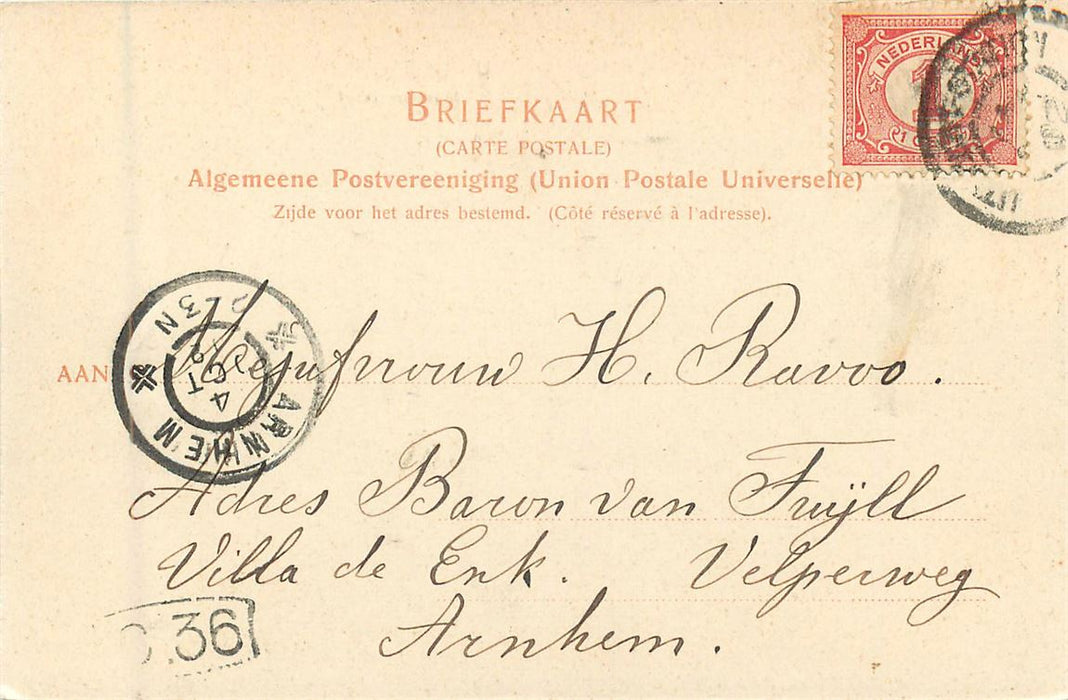 BRIEFKAART
(CARTE POSTALE)
Algemeene Postvereeniging (Union Postale Universelle)
Zijde voor het adres bestemd. (Côté réservé à l'adresse).
NEDERLAND
1
ARNHEM
4 OCT
2-3N
AAN Mejufrouw H. Ravoo.
Adres Baron van Tuÿll
Villa de Enk. Velperweg
Arnhem.
36